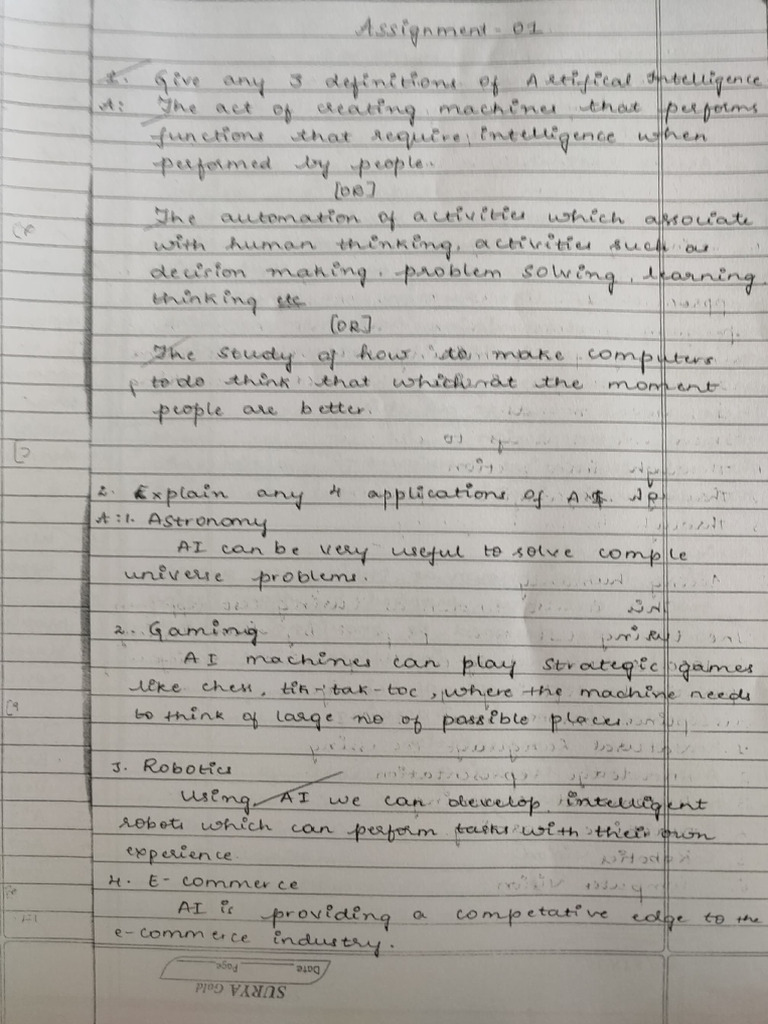 Assignment - 01
1. Give any 3 definitions of Artifical Intelligence
A: The act of creating machines that performs
functions that require intelligence when
performed by people.
[OR]
The automation of activities which associate
with human thinking, activities such as
decision making, problem solving, learning,
thinking etc
[OR]
The study of how to make computers
to do think that which at the moment
people are better.
2. Explain any 4 applications of A.I.
A: 1. Astronomy
AI can be very useful to solve comple
universe problems.
2. Gaming
AI machines can play strategic games
like chess, tik-tak-toc, where the machine needs
to think of large no of possible places.
3. Robotics
Using AI we can develop intelligent
robots which can perform tasks with their own
experience
4. E-commerce
AI is providing a competative edge to the
e-commerce industry.
Date Page
SURYA Gold